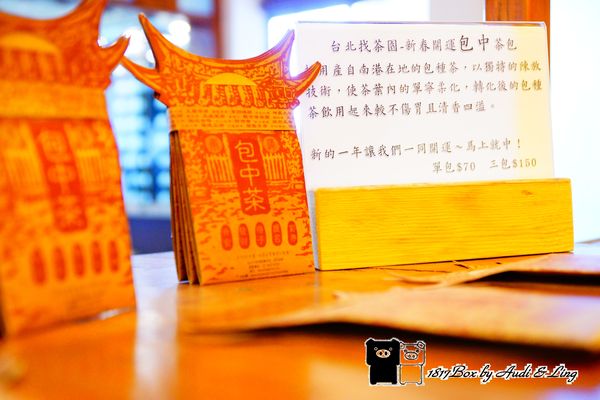 台北找茶園-新春開運包中茶包
採用產自南港在地的包種茶，以獨特的陳放
技術，使茶葉內的單寧柔化，轉化後的包種
茶飲用起來較不傷胃且清香四溢。
新的一年讓我們一同開運～馬上就中！
單包$70 三包$150
包中茶
1817Box by Audi & Ling